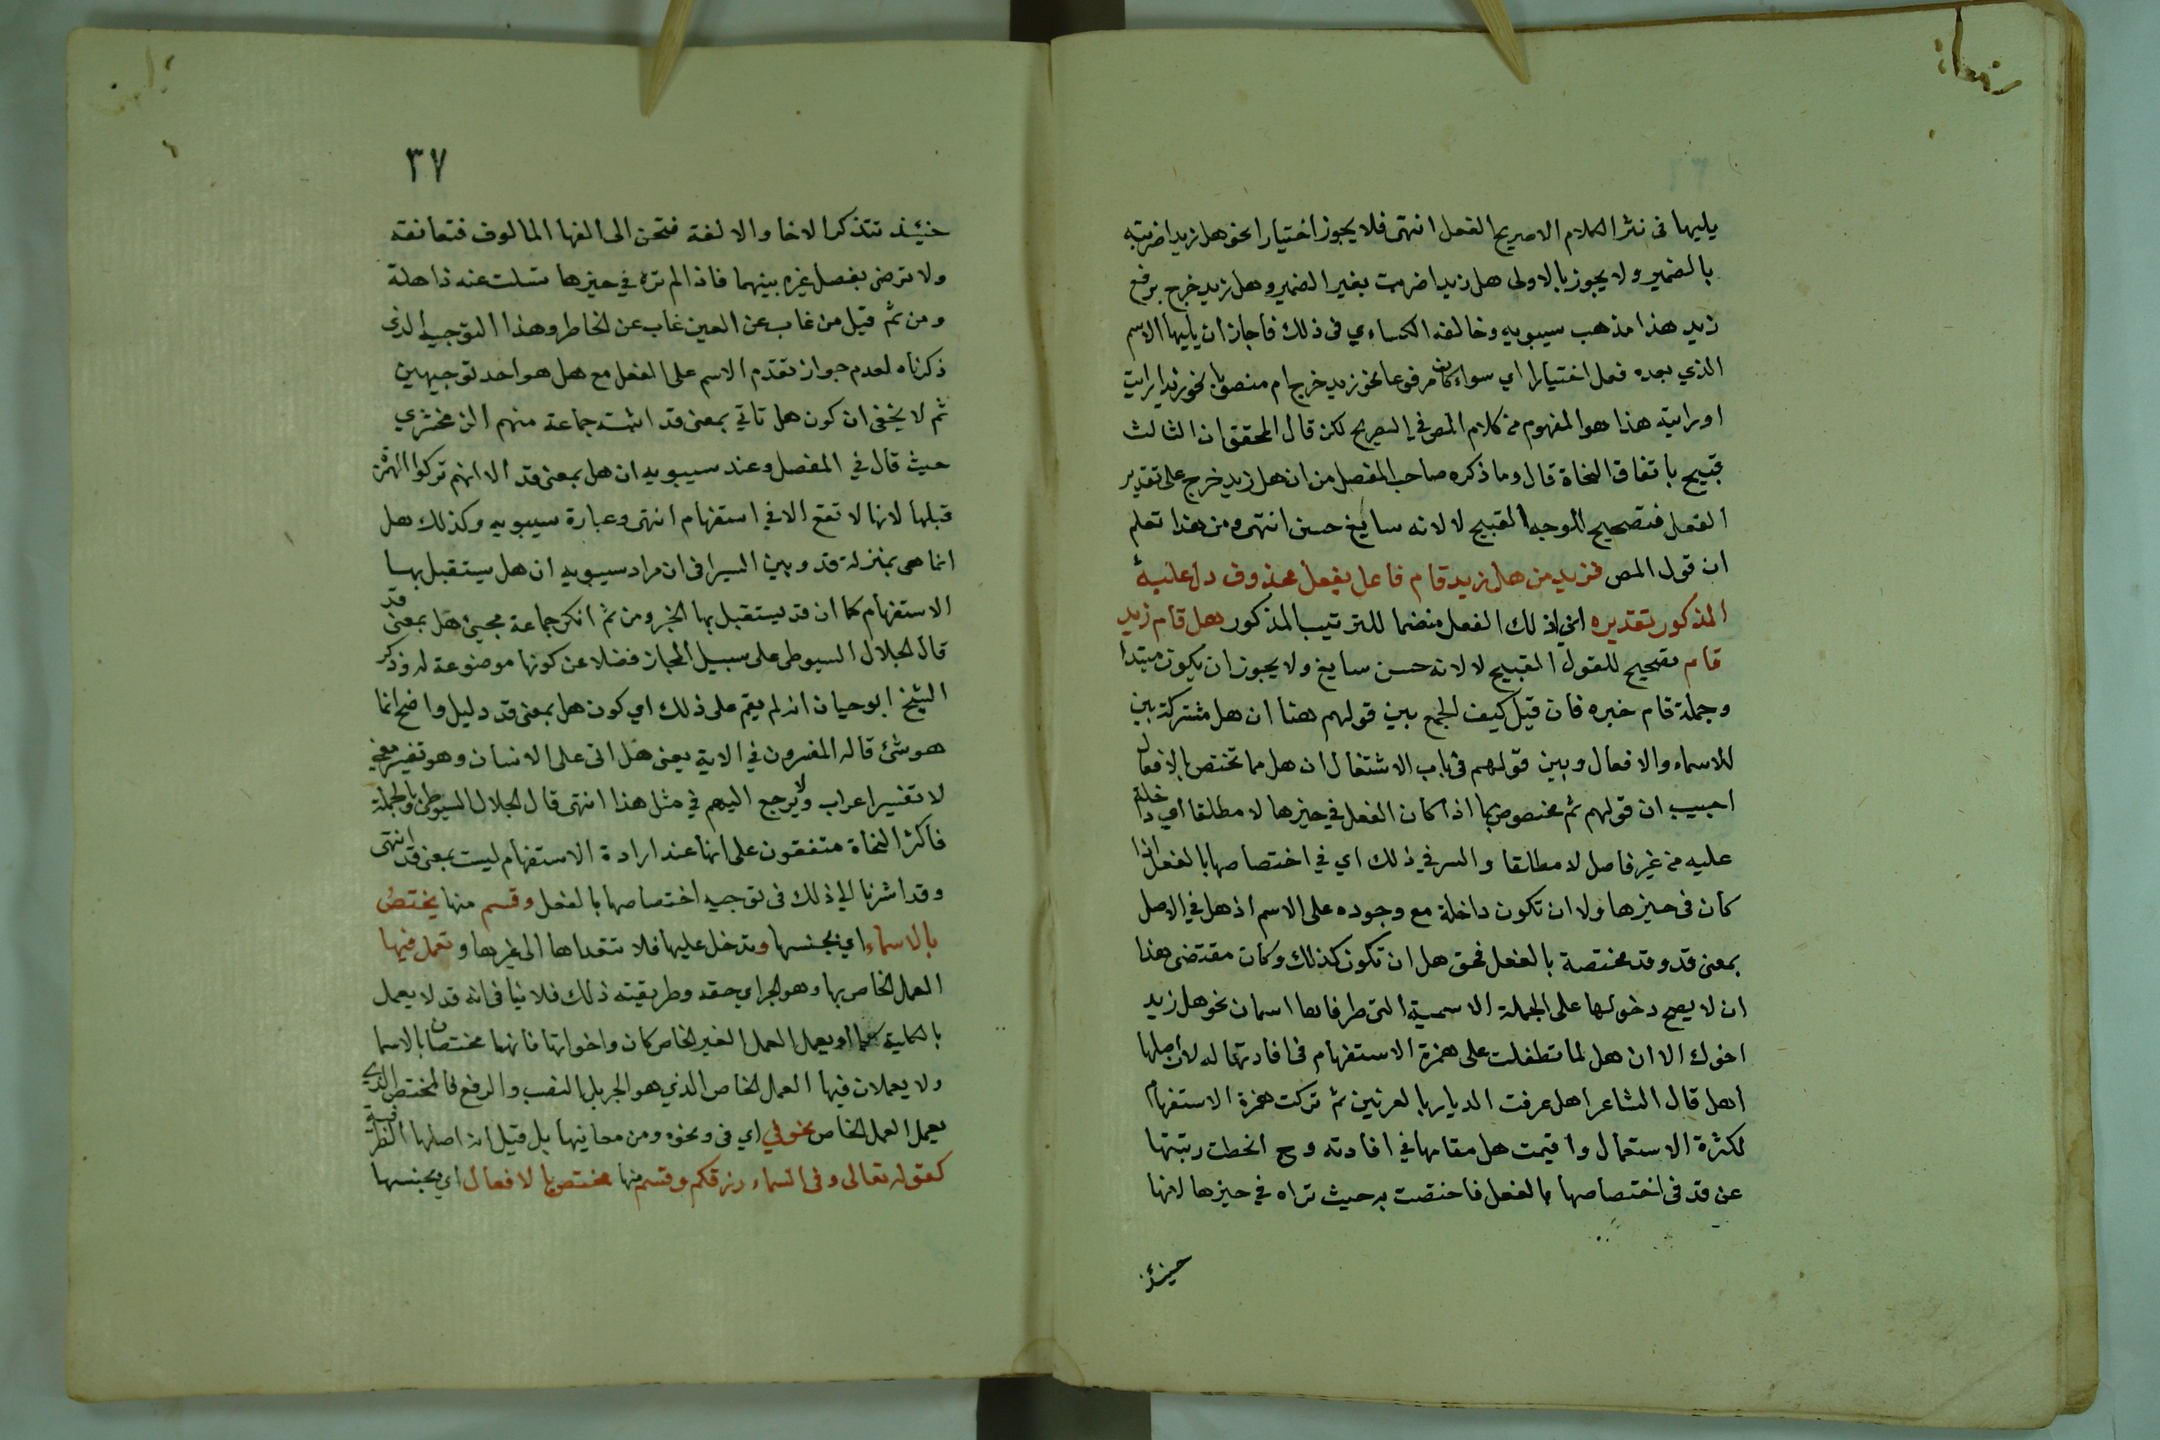 يليها فى نثر الكلام الا صريح الفعل انتهى فلا يجوز اختيارا نحو هل زيدا ضربته
بالضمير ولا يجوز بالاولى هل زيدا ضربت بغير الضمير وهل زيد خرج برفع
زيد هذا مذهب سيبويه وخالفه الكساءي فى ذلك فاجاز ان يليها الاسم
الذي بعده فعل اختيارا اي سواء كان مرفوعا نحو زيد خرج ام منصوبا نحو زيدا رايت
او رايته هذا هو المفهوم من كلام المص في التصريح لكن قال المحقق ان الثالث
قبيح باتفاق النحاة قال وما ذكره صاحب المفصل من ان هل زيد خرج على تقدير
الفعل فتصحيح للوجه القبيح لا لانه سايغ حسن انتهى ومن هذا تعلم
ان قول المص فزيد من هل زيد قام فاعل بفعل محذوف دل عليه
المذكور تقديره اي ذلك الفعل منضما للترتيب المذكور هل قام زيد
قام تصحيح للقول القبيح لا لانه حسن سايغ ولا يجوز ان يكون مبتدا
وجملة قام خبره فان قيل كيف الجمع بين قولهم هنا ان هل مشتركة بين
للاسماء والافعال وبين قولهم فى باب الاشتغال ان هل مما تختص بالافعال
اجيب ان قولهم ثم مخصوص بما اذا كان الفعل في حيزها لا مطلقا اي داخلة
عليه من غير فاصل لا مطلقا والسر في ذلك اي في اختصاصها بالفعل اذا
كان فى حيزها ولا ان تكون داخلة مع وجوده على الاسم اذ هل في الاصل
بمعنى قد وقد مختصة بالفعل فحق هل ان تكون كذلك وكان مقتضى هذا
ان لا يصح دخولها على الجملة الاسمية التى طرفاها اسمان نحو هل زيد
اخوك الا ان هل لما تطفلت على همزة الاستفهام فى افادتها له لان اصلها
اهل قال الشاعر اهل عرفت الديار بالغرتين ثم تركت همزة الاستفهام
لكثرة الاستعمال واقيمت هل مقامها في افادته وح انحطت رتبتها
عن قد فى اختصاصها بالفعل فاختصت به حيث تراه في حيزها لانها
حينئذ
٣٧
حينئذ تتذكر الاخا والالفة فتحن الى الفها المالوف فتعانقه
ولا ترضى بفصل غيره بينهما فاذا لم تره في حيزها تسلت عنه ذاهلة
ومن ثم قيل من غاب عن العين غاب عن الخاطر وهذا التوجيه الذى
ذكرناه لعدم جواز تقدم الاسم على الفعل مع هل هو احد توجيهين
ثم لا يخفى ان كون هل تاتي بمعنى قد اثبته جماعة منهم الزمخشري
حيث قال في المفصل وعند سيبويه ان هل بمعنى قد الا انهم تركوا الهمزة
قبلها لانها لا تقع الا في استفهام انتهى وعبارة سيبويه وكذلك هل
انما هى بمنزلة قد وبين السيرافى ان مراد سيبويه ان هل يستقبل بها
الاستفهام كما ان قد يستقبل بها الخبر ومن ثم انكر جماعة مجيئ هل بمعنى قد
قال الجلال السيوطى على سبيل المجاز فضلا عن كونها موضوعة له وذكر
الشيخ ابو حيان انه لم يقم على ذلك اي كون هل بمعنى قد دليل واضح انما
هو شئ قاله المفسرون في الاية يعنى هل اتى على الانسان وهو تفسير معنى
لا تفسير اعراب ولا يرجع اليهم في مثل هذا انتهى قال الجلال السيوطى وبالجملة
فاكثر النحاة متفقون على انها عند ارادة الاستفهام ليست بمعنى قد انتهى
وقد اشرنا الى ذلك فى توجيه اختصاصها بالفعل وقسم منها يختص
بالاسماء اي بجنسها وتدخل عليها فلا تتعداها الى غيرها وتعمل فيها
العمل الخاص بها وهو الجر اي حقه وطريقته ذلك فلا ينافى انه قد لا يعمل
بالكلية او يعمل العمل الغير الخاص كان واخواتها فانهما مختصان بالاسما
ولا يعملان فيها العمل الخاص الذي هو الجر بل النصب والرفع فالمختص الذي
يعمل العمل الخاص نحو في اي فى ونحوه ومن معانيها بل قيل انه اصلها الظرفية
كقوله تعالى وفى السماء رزقكم وقسم منها مختص بالافعال اي بجنسها